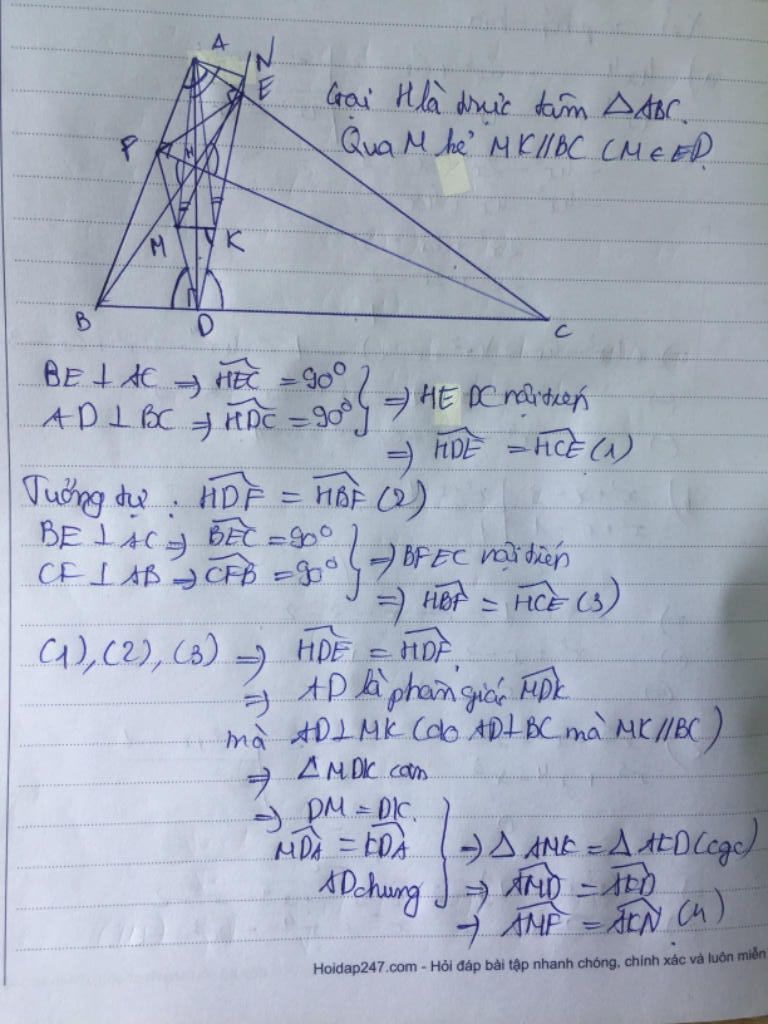 A
N
E
F
H
M
K
B
D
C
Gọi H là trực tâm △ABC.
Qua M kẻ MK//BC (M ∈ ED).
BE ⊥ AC ⇒ HEC = 90°
AD ⊥ BC ⇒ HDC = 90°
⇒ HEDC nội tiếp
⇒ HDE = HCE (1)
Tương tự : HDF = HBF (2)
BE ⊥ AC ⇒ BEC = 90°
CF ⊥ AB ⇒ CFB = 90°
⇒ BFEC nội tiếp
⇒ HBF = HCE (3)
(1), (2), (3) ⇒ HDE = HDF.
⇒ AD là phân giác MDK
mà AD ⊥ MK (do AD ⊥ BC mà MK//BC)
⇒ △MDK cân
⇒ DM = DK.
MDA = KDA
AD chung
⇒ △AMK = △AKD (cgc)
⇒ AMD = AKD
⇒ AMF = AKN (4)
Hoidap247.com - Hỏi đáp bài tập nhanh chóng, chính xác và luôn miễn